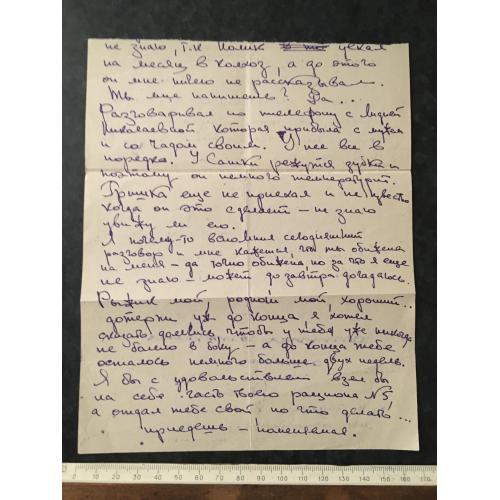 не знаю, т.к Толик уехал
на месяц в колхоз, а до этого
он мне ничего не рассказывал.
Ты мне напишешь? Да...
Разговаривал по телефону с Лидией
Николаевной которая прибыла с мужем
и со чадом своим. У нее все в
порядке. У Сашки режутся зубки и
поэтому он немного температурит.
Гришка еще не приехал и не известно
когда он это сделает - не знаю
увижу ли его.
Я почему-то вспомнил сегодняшний
разговор и мне кажется, что ты обижена
на меня - да точно обижена но за что я еще
не знаю - может до завтра догадаюсь.
Рыжик мой, родной мой, хороший...
дотерпи уж до конца, я хотел
сказать долечись, чтобы у тебя уже никогда
не болело в боку - а до конца тебе
осталось немного больше двух недель.
Я бы с удовольствием взял бы
на себя часть твоего рациона N5,
а отдал тебе свой но что делать...
приедешь -
0 10 20 30 40 50 60 70 80 90 100 110 120 130 140 150 160 170 180